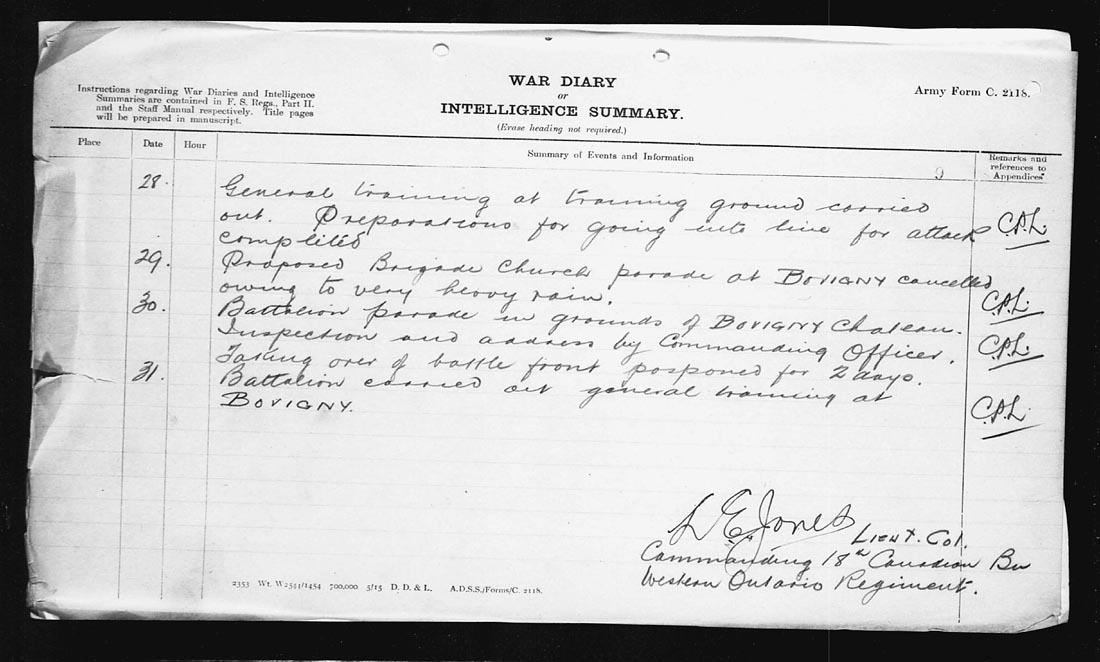 Instructions regarding War Diaries and Intelligence
Summaries are contained in F. S. Regs., Part II.
and the Staff Manual respectively. Title pages
will be prepared in manuscript.
WAR DIARY
or
INTELLIGENCE SUMMARY.
(Erase heading not required.)
Army Form C. 2118.
Place Date Hour Summary of Events and Information Remarks and
references to
Appendices
9
28. General training at training ground carried
out. Preparations for going into line for attack C.P.L.
complited
29. Proposed Brigade Church parade at BOVIGNY cancelled
owing to very heavy rain. C.P.L.
30. Battalion parade in grounds of BOVIGNY Chateau.
Inspection and address by Commanding Officer. C.P.L.
Taking over of battle front posponed for 2 days.
31. Battalion carried out general training at
BOVIGNY. C.P.L.
L E Jones Lieut. Col.
Commanding 18th Canadian Bn
Western Ontario Regiment.
2353 Wt. W2544/1454 700,000 5/15 D. D. & L. A.D.S.S./Forms/C. 2118.